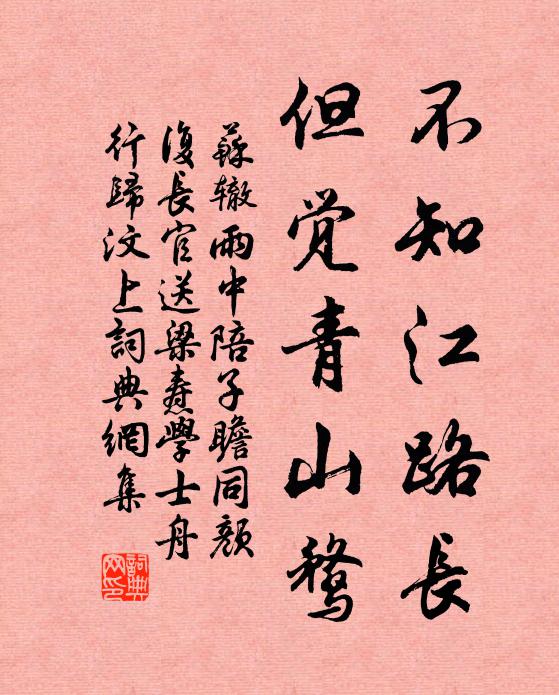 不知江路長
但觉青山鶩
蘇辙雨中陪子瞻同顏
復長官送梁燾學士舟
行歸汶上詞典網集
詞典
网印